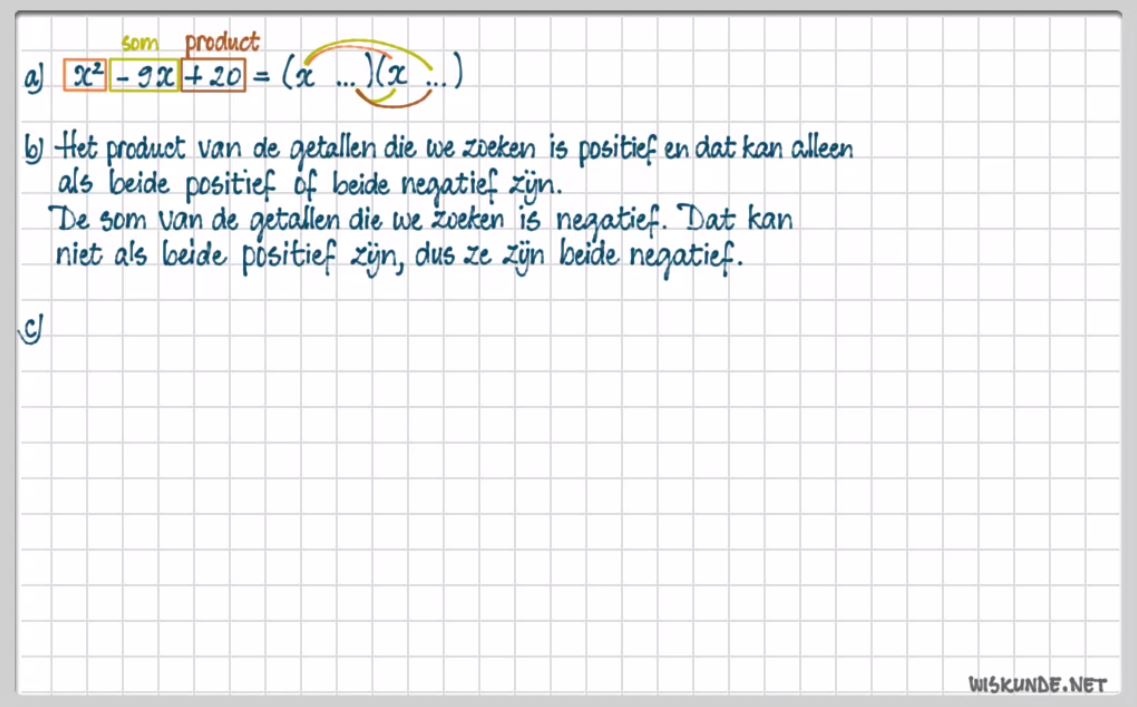 som product
a) x² - 9x + 20 = (x ...)(x ...)
b) Het product van de getallen die we zoeken is positief en dat kan alleen
als beide positief of beide negatief zijn.
De som van de getallen die we zoeken is negatief. Dat kan
niet als beide positief zijn, dus ze zijn beide negatief.
c)
WISKUNDE.NET